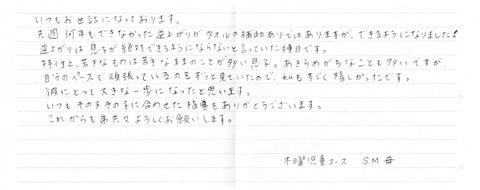 いつもお世話になっております。
先週 何年もできなかった逆上がりがタオルの補助ありではありますが、できるようになりました!
逆上がりは息子が絶対できるようにならないと言っていた種目です。
特性上、苦手なものは苦手なままのことが多い息子。あきらめがちなことも多いですが、
自分のペースで頑張っているのをずっと見ていたので、私もすごく嬉しかったです。
彼にとって大きな一歩になったと思います。
いつもその子その子に合わせた指導をありがとうございます。
これからも弟共々よろしくお願いします。
木曜児童コース S.M 母